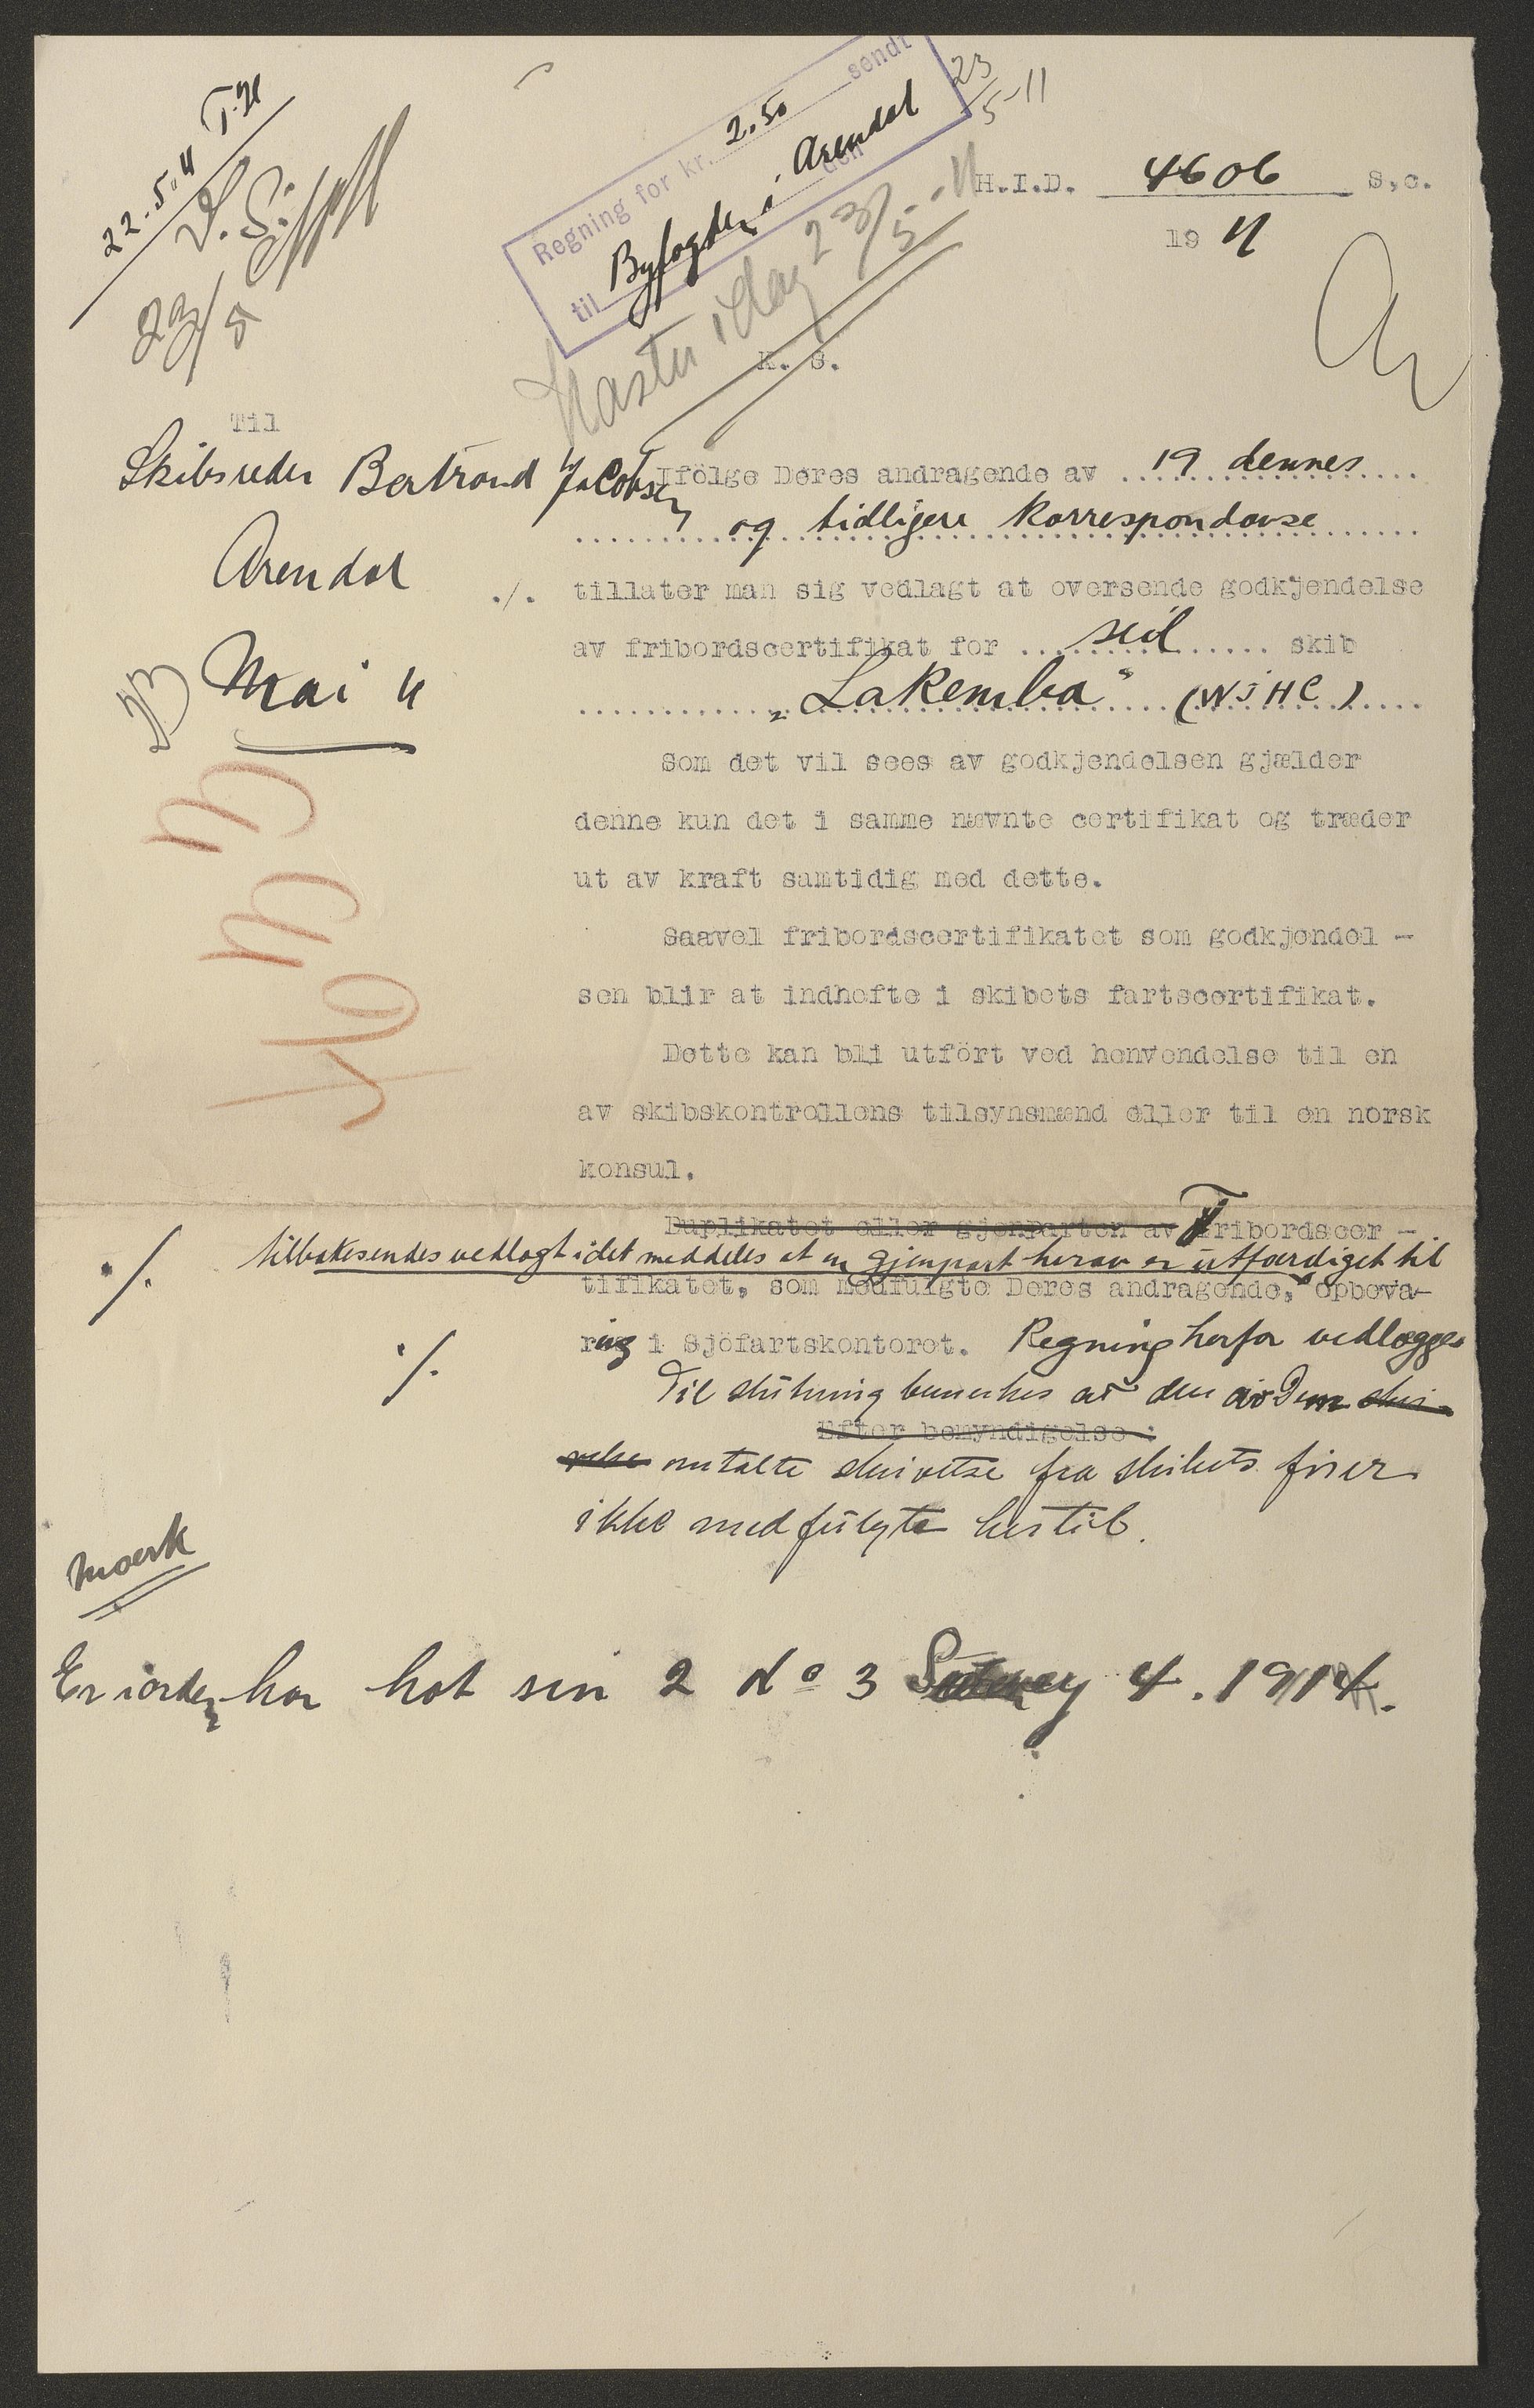 22-5-11
23/5
Regning for kr. 2.50 sendt
til Byfogden i Arendal den
23/5-11
Haster idag 23/5.-11
H.I.D. 4606 S,c.
19 11
K. S.
Til
Skibsreder Bertrand Jacobsen
Arendal
23 Mai 11
Ifölge Deres andragende av 19 dennes
og tidligere korrespondanse
./. tillater man sig vedlagt at oversende godkjendelse
av fribordscertifikat for seil skib
"Lakemba" (WJHC)
Som det vil sees av godkjendelsen gjælder
denne kun det i samme nævnte certifikat og træder
ut av kraft samtidig med dette.
Saavel fribordscertifikatet som godkjendel -
sen blir at indhefte i skibets fartscertifikat.
Dette kan bli utfört ved henvendelse til en
av skibskontrollens tilsynsmænd eller til en norsk
konsul.
Duplikatet eller gjenparten av Fribordscer -
./. tilbakesendes vedlagt idet meddeles at en gjenpart herav er utfærdiget til
tifikatet, som medfulgte Deres andragende, opbeva-
ring i Sjöfartskontoret. Regning herfor vedlægges
./.
Til slutning bemerkes at den av Dem skri-
Efter bemyndigelse :
velse omtalte skrivelse fra skibets fører
ikke medfulgte hertil.
Mærk
Er iorden har hat sin 2 do 3 4. 1914.